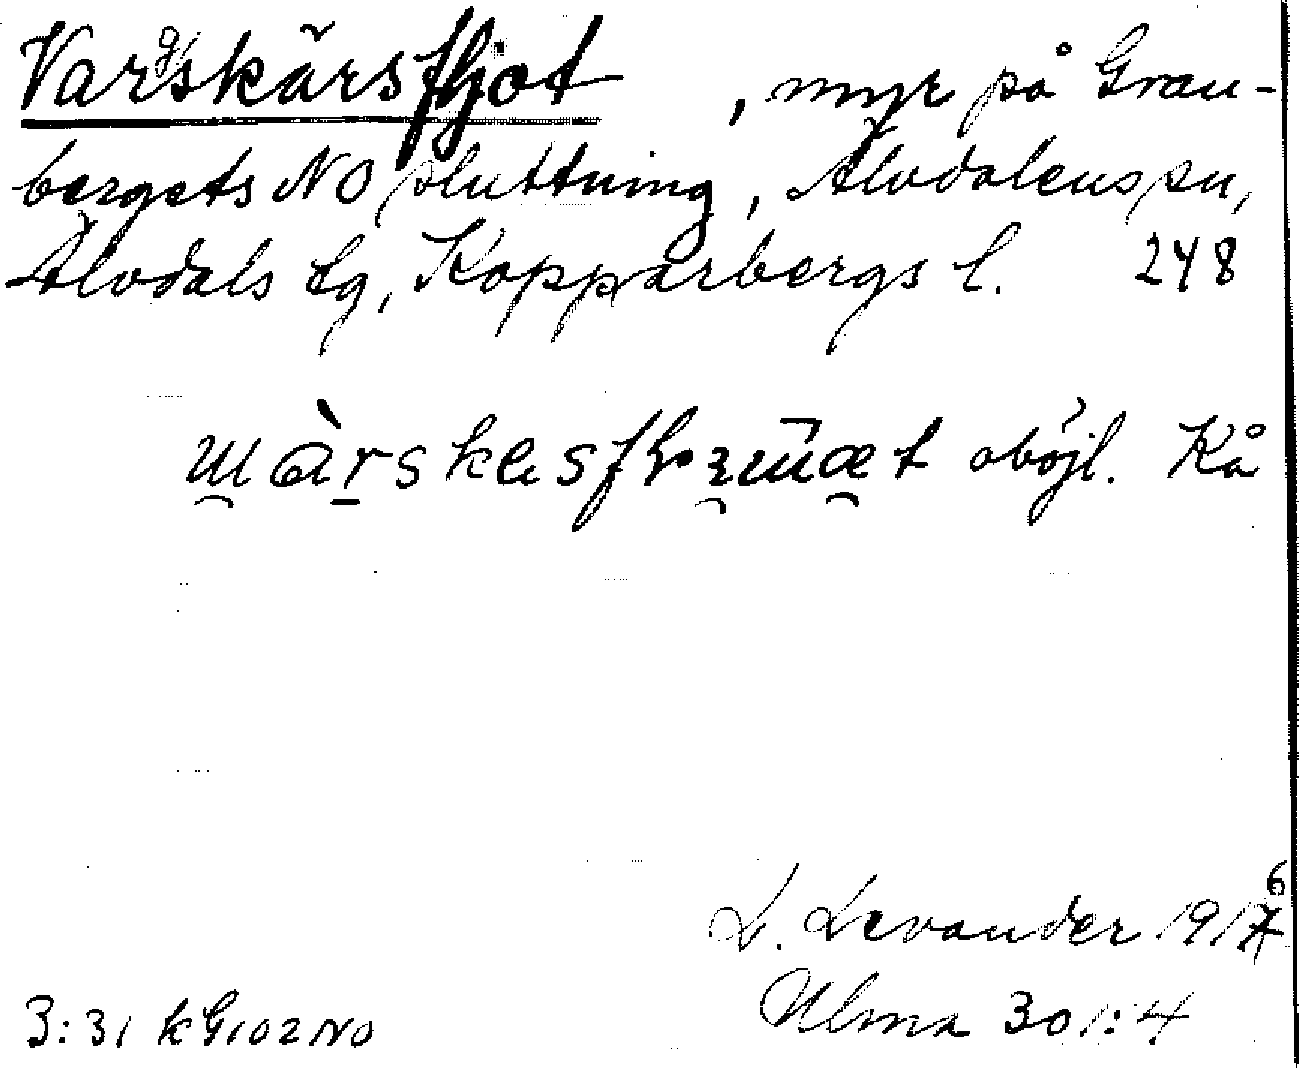 Vargskärsfljot, myr på Gran-
bergets NO sluttning, Älvdalens sn,
Älvdals tg, Kopparbergs l. 248
oböjl. Kå
L. Levander 1916
Ulma 301:4
3:31 k G102 NO